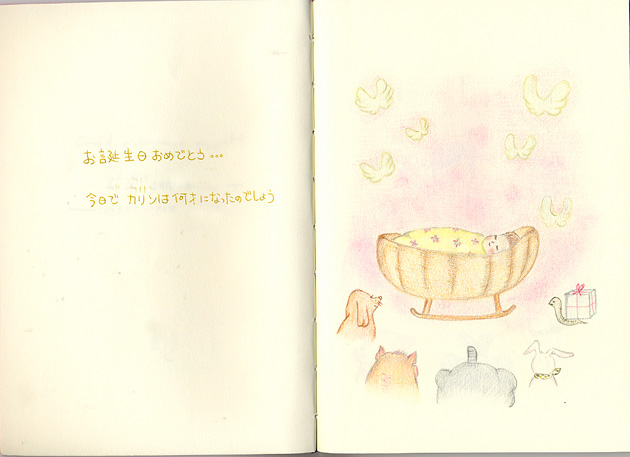 お誕生日おめでとう...
今日で カリンは何才になったのでしょう